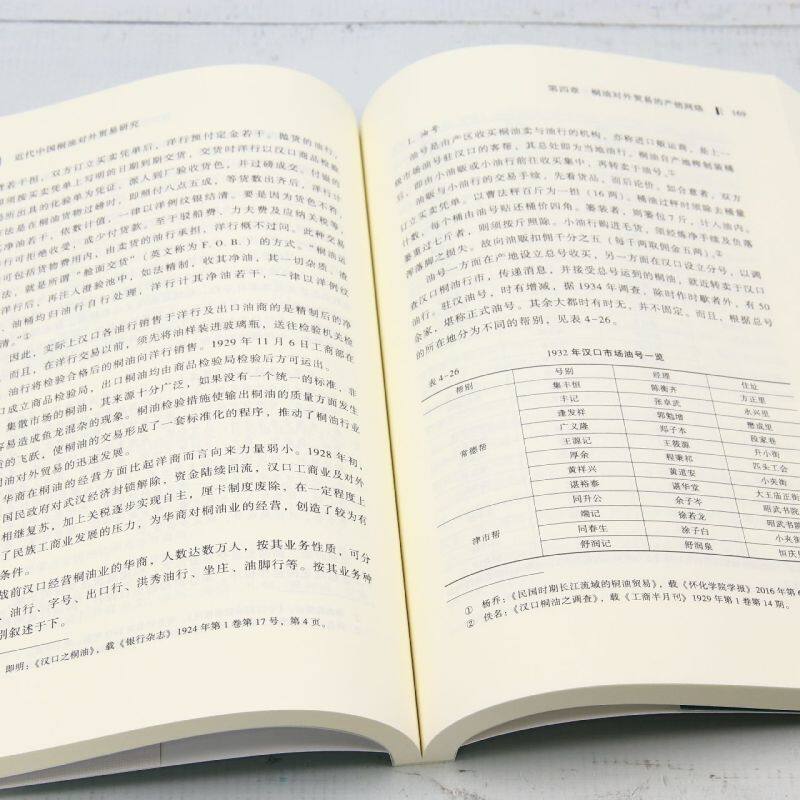 近代中国桐油对外贸易研究
若干担，双方订立买卖凭单后，洋行预付定金若干。抛货的油行，
须按买卖凭单上写明的日期到期交货，交货时洋行以汉口商品检验
局所出具的化验单为凭证，派人到厂验收货色，并过磅成交。付银的
方法是在桐油货物过磅时，即照付八点五成，等货数出齐后，洋行计
其净油若干，依数计值，一律以洋例纹银结清。要是因为货色不符，
洋行可拒绝收受，或少付货款。至于驳船费、力夫费及应纳关税等，
可包括货物费用内，由卖货的油行承担，洋行概不过问。此种交易
法，就是所谓“舱面交货”（英文称为F.O.B.）的方式。“桐油运
洋行后，再注入澄验池中，如法精制，收其净油，其一切杂质、渣
、油桶均归油行自行处理，洋行计其净油若干，一律以洋例纹
清。”①
因此，实际上汉口各油行销售于洋行及出口油商的是精制后的净
，而且，在洋行交易以前，须先将油样装进玻璃瓶，送往检验机关检
，油行将检验合格后的桐油向洋行销售。1929年11月6日工商部在
口成立商品检验局，出口桐油均由商品检验局检验后方可运出。
集散市场的桐油，其来源十分广泛，如果没有一个统一的标准，非
容易造成鱼龙混杂的现象。桐油检验措施使输出桐油的质量方面发生
的飞跃，使桐油的交易形成了一套标准化的程序，推动了桐油行业
油对外贸易的迅速发展。
华商在桐油的经营方面比起洋商而言向来力量弱小。1928年初，
国民政府对武汉经济封锁解除，资金陆续回流，汉口工商业及对外
相继复苏，加上关税逐步实现自主，厘卡制度废除，在一定程度上
了民族工商业发展的压力，为华商对桐油业的经营，创造了较为有
条件。
战前汉口经营桐油业的华商，人数达数万人，按其业务性质，可分
、油行、字号、出口行、洪秀油行、坐庄、油脚行等。按其业务种
别叙述于下。
即明：《汉口之桐油》，载《银行杂志》1924年第1卷第17号，第4页。
第四章 桐油对外贸易的产销网络 169
1. 油号
油号是由产区收买桐油卖与油行的机构，亦称进口贩运商，是上一
级市场油号驻汉口的客帮，其总处即为当地油行。桐油自产地榨制装桶
后，即由小油贩或小油行前往收买集中，再转卖于油号。①
油贩与小油行的交易手续，先看货品，而后论价，如合意者，双方
订立买卖凭单。以曹法秤百斤为一担（16两）。桶油过秤时须除去桶量
计数，每个桶由油号贴还桶价四角。篓装者，则篓包7斤，计入油内。
篓重过七斤者，则须按斤照除。小油行购进毛货，须经炼净手续及负落
浑落脚之损失。故向油贩扣佣千分之五（每千两取佣金五两）。②
油号一方面在产地设立总号收买，另一方面在汉口设立分号，以调
查汉口桐油行市，传递消息，并接受总号运到的桐油，就近转卖于汉口
油行。驻汉油号，时有增减，据1934年调查，除时作时歇者外，有50
余家，堪称正式油号。其余大都时有时无，并不固定。而且，根据总号
的所在地分为不同的帮别，见表4-26。
表4-26 1932年汉口市场油号一览
帮别 号别 经理 住址
常德帮 集丰恒 陈衡齐 方正里
丰记 张卓武 永兴里
逢发祥 郭勉增 懋成里
广义隆 郑子本 段家巷
王源记 王筱源 升小街
厚余 程秉祁 匹头工会
黄祥兴 黄道安 小夹街
谌裕泰 谌华堂 大王庙正街
津市帮 同升公 余子岑 昭武书院
端记 徐若龙 昭武书院
同春生 涂子白 小夹街
舒润记 舒润泉 恒庆
① 杨乔：《民国时期长江流域的桐油贸易》，载《怀化学院学报》2016年第6
② 佚名：《汉口桐油之调查》，载《工商半月刊》1929年第1卷第14期。